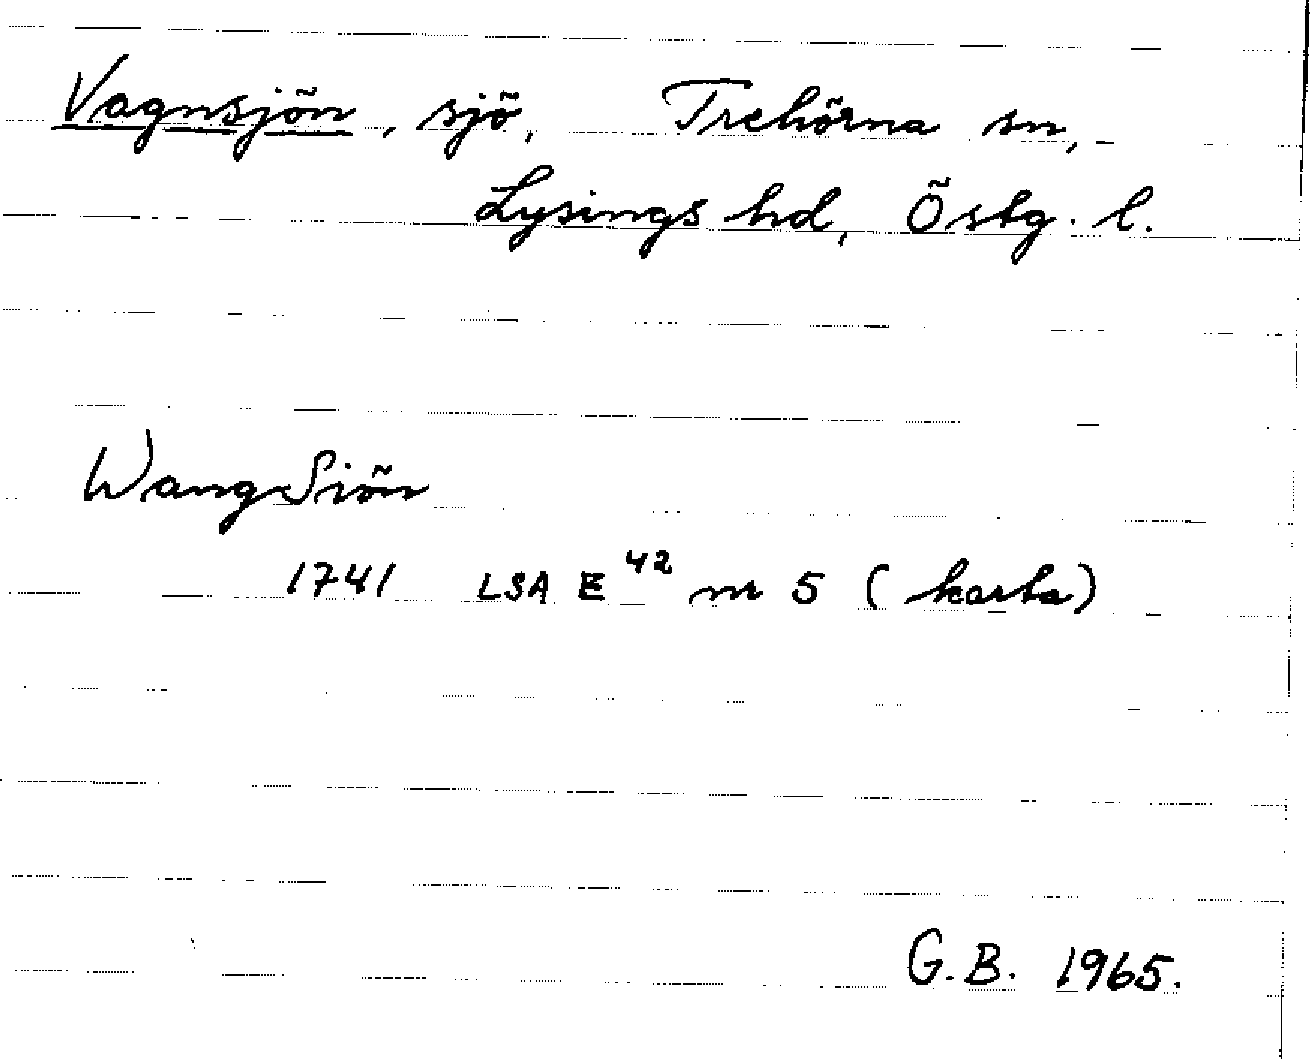 Vagnsjön, sjö, Trehörna sn,
Lysings hd, Östg. l.
WangSiön
1741 LSA E 42 nr 5 (karta)
G.B. 1965.